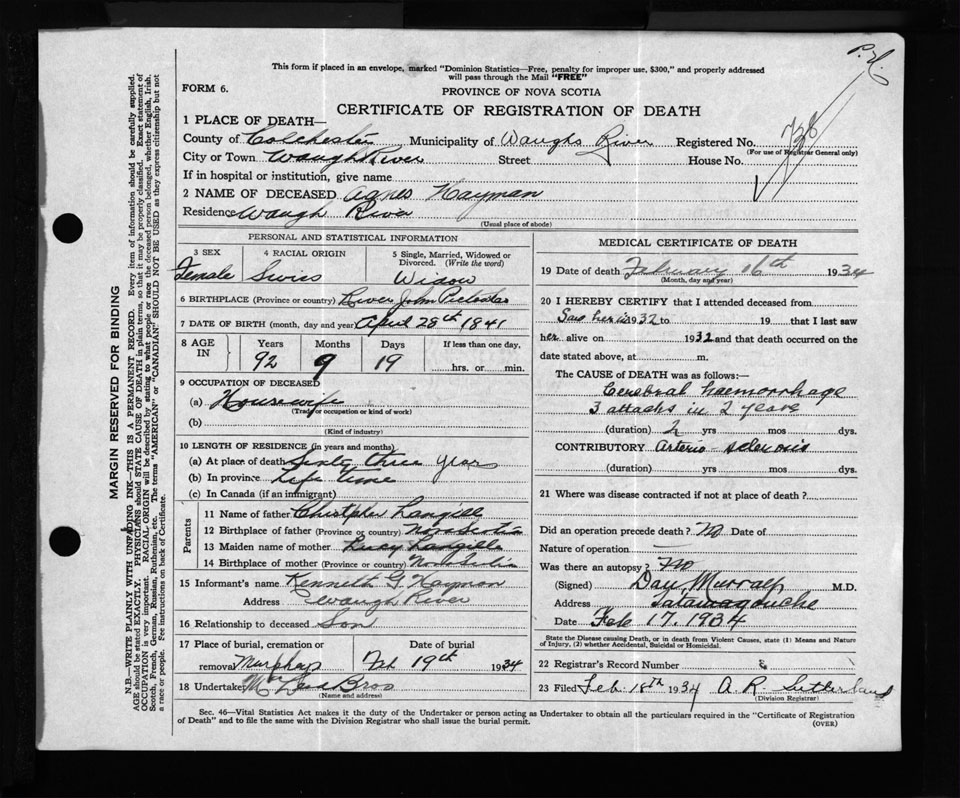 P. H.
This form if placed in an envelope, marked "Dominion Statistics—Free, penalty for improper use, $300," and properly addressed
will pass through the Mail "FREE"
FORM 6.
PROVINCE OF NOVA SCOTIA
CERTIFICATE OF REGISTRATION OF DEATH
738
1 PLACE OF DEATH—
County of Colchester Municipality of Waughs River Registered No.
(For use of Registrar General only)
City or Town Waugh River Street House No.
If in hospital or institution, give name
2 NAME OF DECEASED Agnes Hayman
Residence Waugh River
(Usual place of abode)
MARGIN RESERVED FOR BINDING
N.B.—WRITE PLAINLY WITH UNFADING INK—THIS IS A PERMANENT RECORD. Every item of information should be carefully supplied.
AGE should be stated EXACTLY. PHYSICIANS should STATE CAUSE OF DEATH in plain terms, so that it may be properly classified. Exact statement of
OCCUPATION is very important. RACIAL ORIGIN will be described by stating to what people or race the deceased person belonged, whether English, Irish,
Scotch, French, German, Russian, Ruthenian, etc. The terms "AMERICAN" or "CANADIAN" SHOULD NOT BE USED as they express citizenship but not
a race or people. See instructions on back of Certificate.
PERSONAL AND STATISTICAL INFORMATION
3 SEX 4 RACIAL ORIGIN 5 Single, Married, Widowed or
Divorced. (Write the word)
Female Swiss Widow
6 BIRTHPLACE (Province or country) River John Pictou
7 DATE OF BIRTH (month, day and year) April 28th 1841
8 AGE IN Years Months Days If less than one day,
92 9 19 hrs. or min.
9 OCCUPATION OF DECEASED
(a) Housewife
(Trade or occupation or kind of work)
(b)
(Kind of industry)
10 LENGTH OF RESIDENCE (in years and months)
(a) At place of death Sixty three years
(b) In province Life time
(c) In Canada (if an immigrant)
Parents
11 Name of father Christpher Langille
12 Birthplace of father (Province or country) Nova Scotia
13 Maiden name of mother Lucy Langille
14 Birthplace of mother (Province or country) Nova Scotia
15 Informant's name Kenneth G Hayman
Address Waugh River
16 Relationship to deceased Son
17 Place of burial, cremation or Date of burial
removal Murphys Feb 19th 1934
18 Undertaker Bros
(Name and address)
MEDICAL CERTIFICATE OF DEATH
19 Date of death February 16th 1934
(Month, day and year)
20 I HEREBY CERTIFY that I attended deceased from
Saw her in 1932 to 19 that I last saw
her alive on 1932 and that death occurred on the
date stated above, at m.
The CAUSE of DEATH was as follows:—
Cerebral haemorrhage
3 attacks in 2 years
(duration) 2 yrs mos dys.
CONTRIBUTORY Arterio sclerosis
(duration) yrs mos dys.
21 Where was disease contracted if not at place of death?
Did an operation precede death? No Date of
Nature of operation —
Was there an autopsy? No
(Signed) Dan Murray M.D.
Address Tatamagouche
Date Feb 17. 1934
State the Disease causing Death, or in death from Violent Causes, state (1) Means and Nature
of Injury, (2) whether Accidental, Suicidal or Homicidal.
22 Registrar's Record Number 8
23 Filed Feb. 18th 1934 A. R. Sutherland
(Division Registrar)
Sec. 46—Vital Statistics Act makes it the duty of the Undertaker or person acting as Undertaker to obtain all the particulars required in the "Certificate of Registration
of Death" and to file the same with the Division Registrar who shall issue the burial permit.
(OVER)